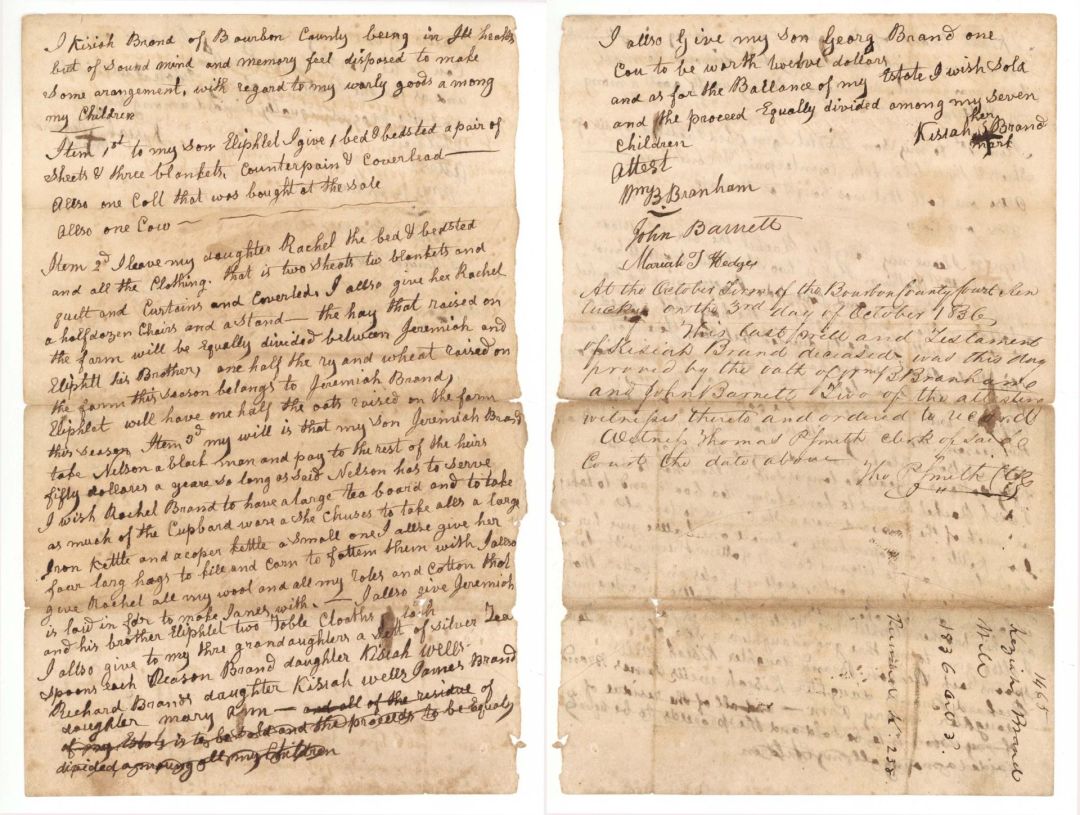 I Kisiah Brand of Bourbon County being in Ill health
but of sound mind and memory feel disposed to make
Some arangement, with regard to my warly goods among
my Children
Item 1st to my son Eliphlet I give 1 bed & bedsted a pair of
sheets & three blankets, Counterpain & Coverlead
Allso one Colt that was bought at the sale
Allso one Cow
Item 2d I leave my daughter Rachel the bed & bedsted
and all the Clothing. That is two Sheets tw blankets and
quilt and Curtains and Coverled, I allso give her Rachel
a half dozen Chairs and a Stand — the hay that raised on
the farm will be Equally divided between Jeremiah and
Eliphlt his Brother, one half the ry and wheat raised on
the farm this season belongs to Jeremiah Brand,
Eliphlet will have one half the oats raised on the farm
this season Item 3d my will is that my Son Jeremiah Brand
take Nelson a black man and pay to the rest of the heirs
fifty dollares a yeare so long as said Nelson has to serve
I wish Rachel Brand to have a large tea board and to take
as much of the Cupbard ware a She Chuses to take alls a large
Iron Kettle and a coper kettle a small one I allse give her
foer larg hogs to kill and Corn to fattem them with I also
give Rachel all my wool and all my roles and Cotton that
is law in for to make Janes, with. — I also give Jeremiah
and his brother Eliphlet two Table Cloaths Each
I allso give to my thre grandaughters a Sett of Silver Tea
spoons each Reason Brand daughter Kisiah wells
Richard Brands daughter Kisiah wells James Brand
daughter mary Ann — and all of the residue of
of my Estate is to be sold and the proceeds to be Equaly
divided among all my Children
I allso Give my Son Georg Brand one
Cou to be worth twelve dollars
and as for the Ballance of my Estate I wish Sold
and the proceed Equally divided among my Seven
Children
her
Kisiah Brand
mark
Attest
Wm B. Branham
John Barnett
Mariah T Hedges
At the October Term of the Bourbon County Court Ken
tucky on the 3rd day of October 1836
This last Will and Testament
of Kisiah Brand deceased was this day
proved by the oath of Wm B Branham
and John Barnett Two of the attesting
witnesses thereto and ordered to record
Witness Thomas P Smith clerk of said
Court the date above
Tho P Smith Clk
465
Keziah Brand
Will
1836 Octo 3.